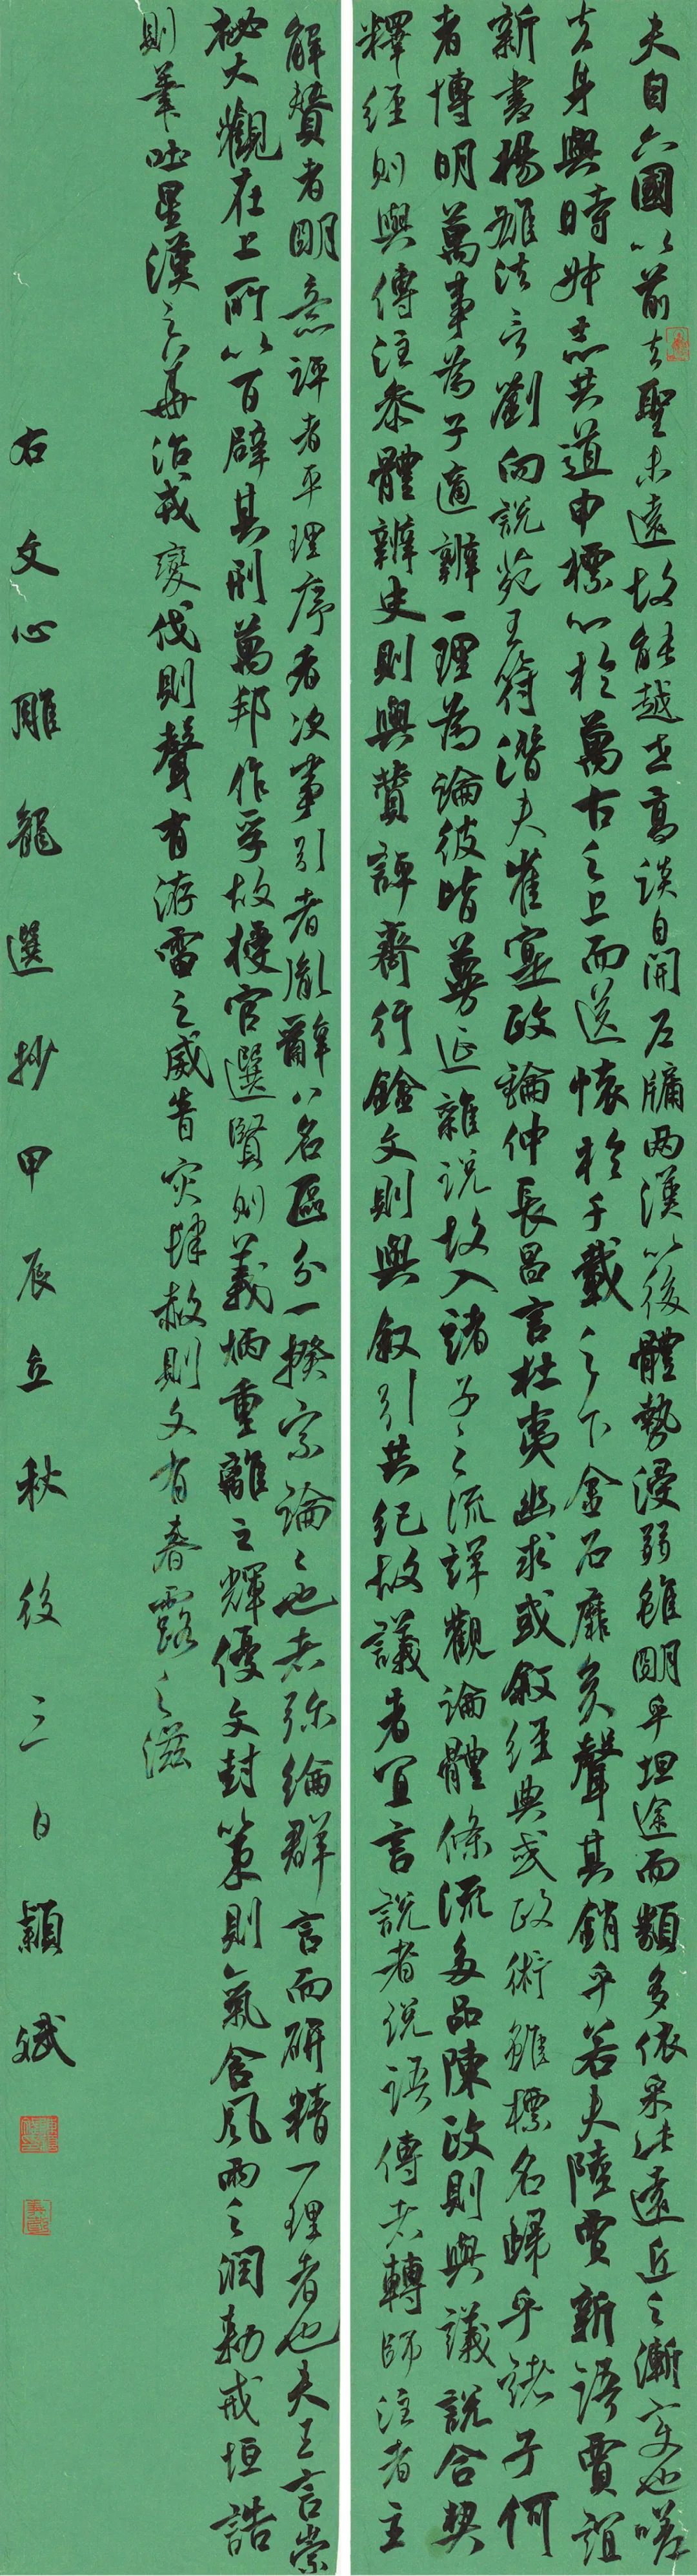 夫自六國以前去聖未遠故能越世高談自開户牖兩漢以後體勢浸弱雖明乎坦途而類多依采此遠近之漸變也嗟
夫身與時舛志共道申標心於萬古之上而送懷於千載之下金石靡矣聲其銷乎若夫陸賈新語賈誼
新書揚雄法言劉向說苑王符潛夫崔寔政論仲長昌言杜夷幽求或叙經典或政術雖標名歸乎諸子何
者博明萬事為子適辨一理為論彼皆蔓延雜說故入諸子之流詳觀論體條流多品陳政則與議說合契
釋經則與傳注参體辨史則與贊評齊行銓文則與叙引共紀故議者宜言說者說語傳者轉師注者主
解贊者明意評者平理序者次事引者胤辭八名區分一揆宗論論也者弥綸群言而研精一理者也夫王言崇
祕大觀在上所以百辟其刑萬邦作孚故授官選賢則義炳重離之輝優文封策則氣含風雨之潤勅戒恒誥
則筆吐星漢之華治戎燮伐則聲有洊雷之威眚災肆赦則文有春露之滋
右文心雕龍選抄甲辰立秋後三日穎斌